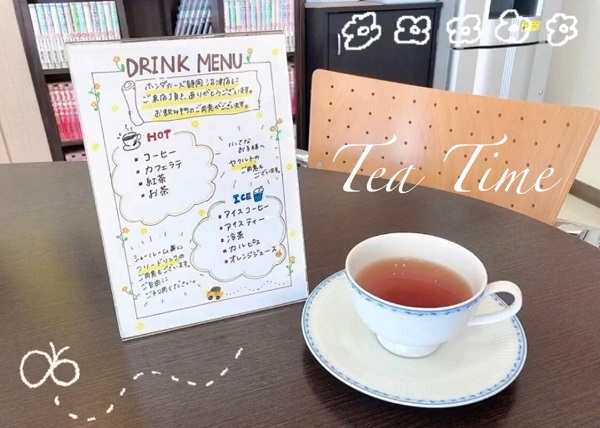 DRINK MENU
ホンダカーズ静岡 沼津店に
ご来店頂き、ありがとうございます。
お飲み物のご用意がございます。
HOT
・コーヒー
・カフェラテ
・紅茶
・お茶
小さな
お子様へ
ヤクルトの
ご用意も
ございます。
ICE
・アイスコーヒー
・アイスティー
・冷茶
・カルピス
・オレンジジュース
ショールーム奥に
フリードリンクの
ご用意もございます。
ご自由に
ご利用ください。
Tea Time